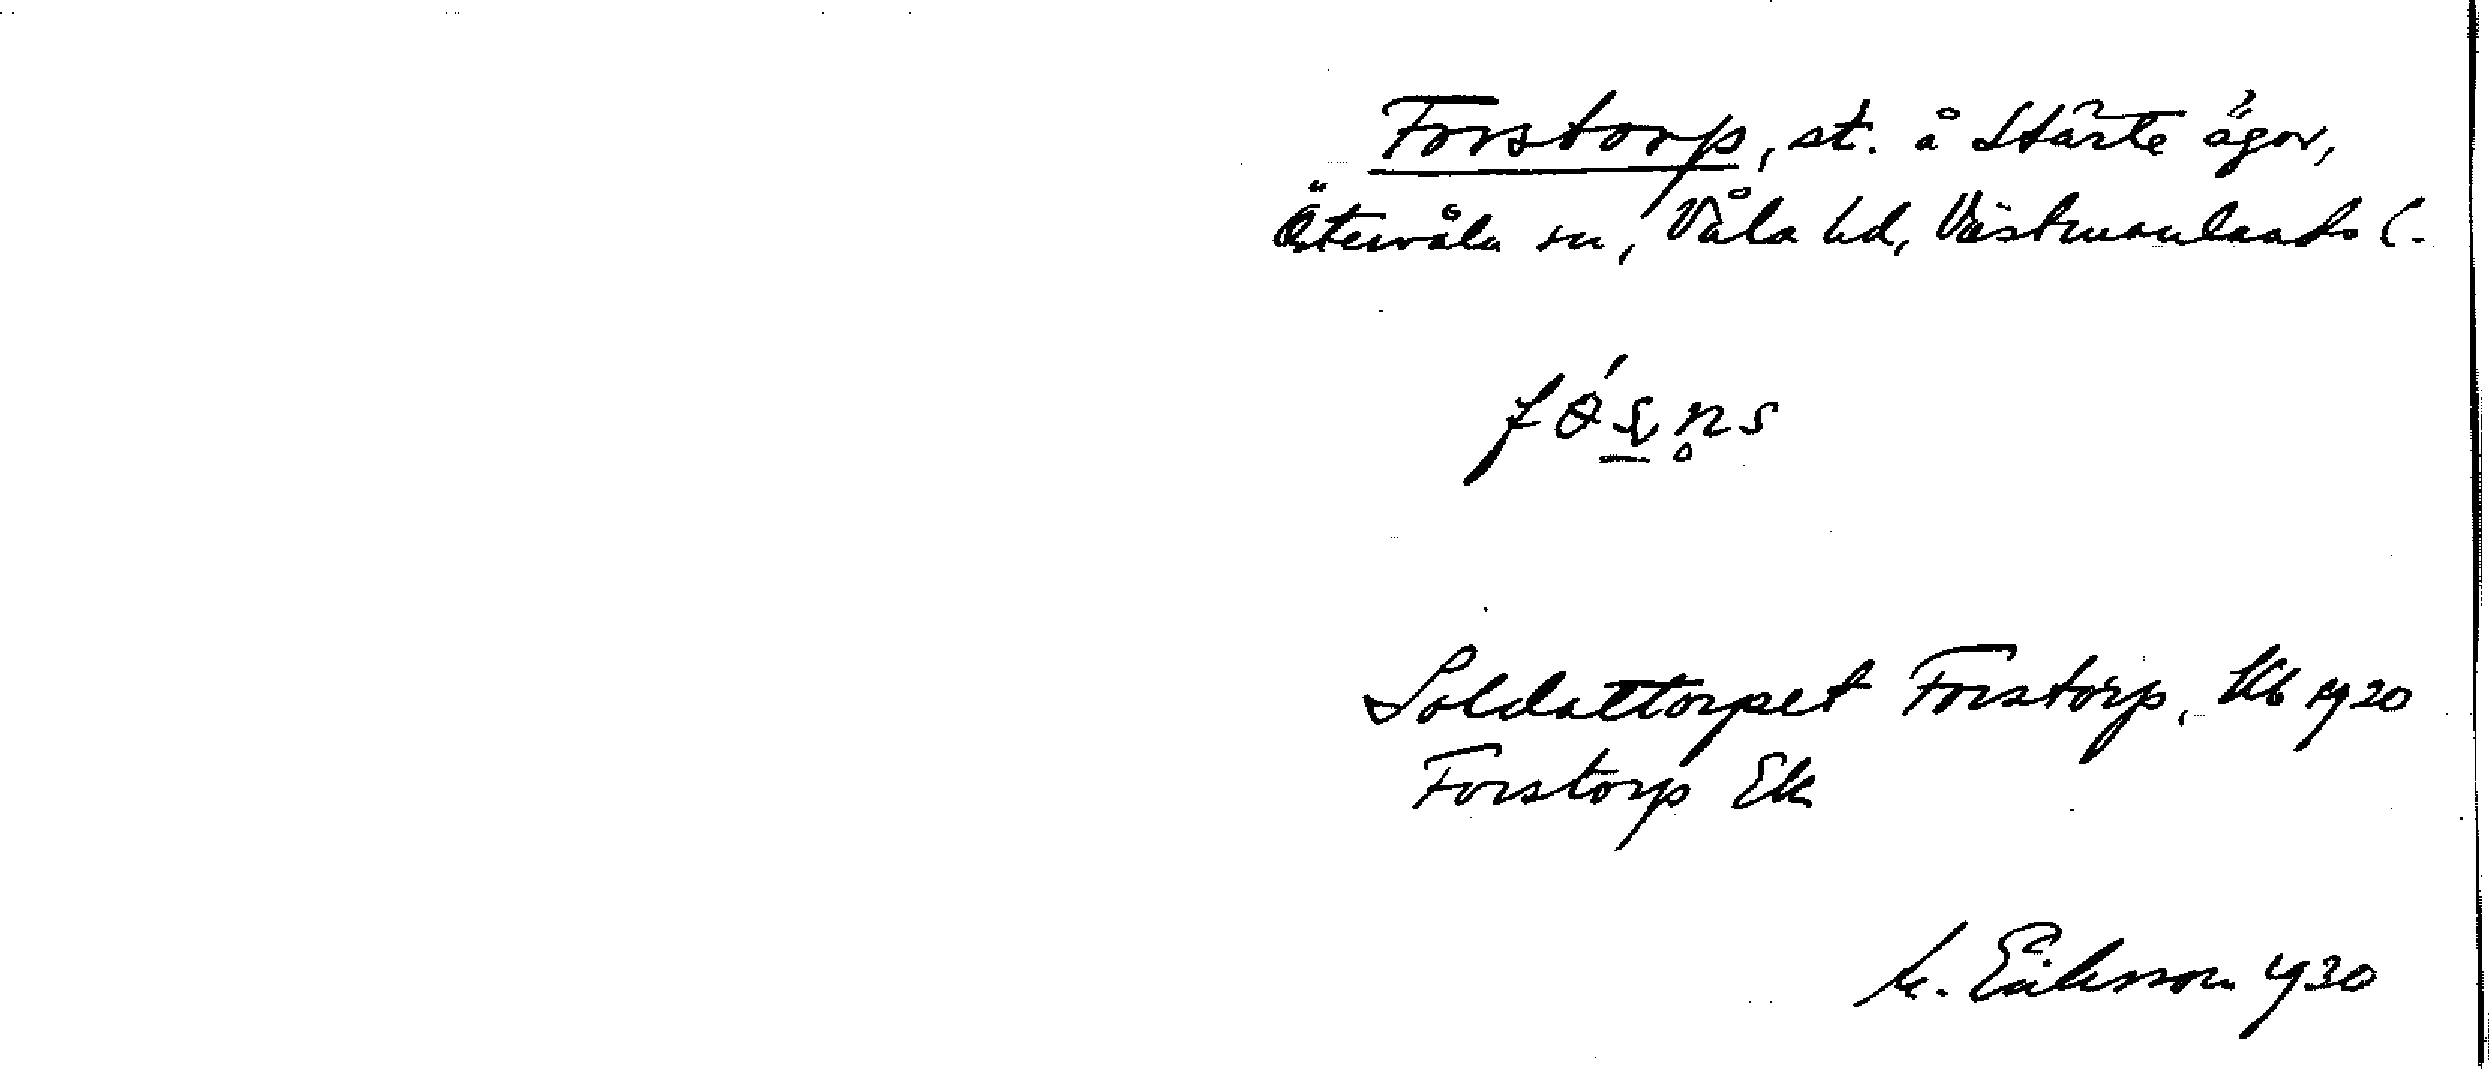 Forstorp, st. å Stärte ägor,
Östervåla sn, Våla hd, Västmanlands l.
Soldattorpet Forstorp, Kb 1920
Forstorp Ek
M. Eriksson 1930